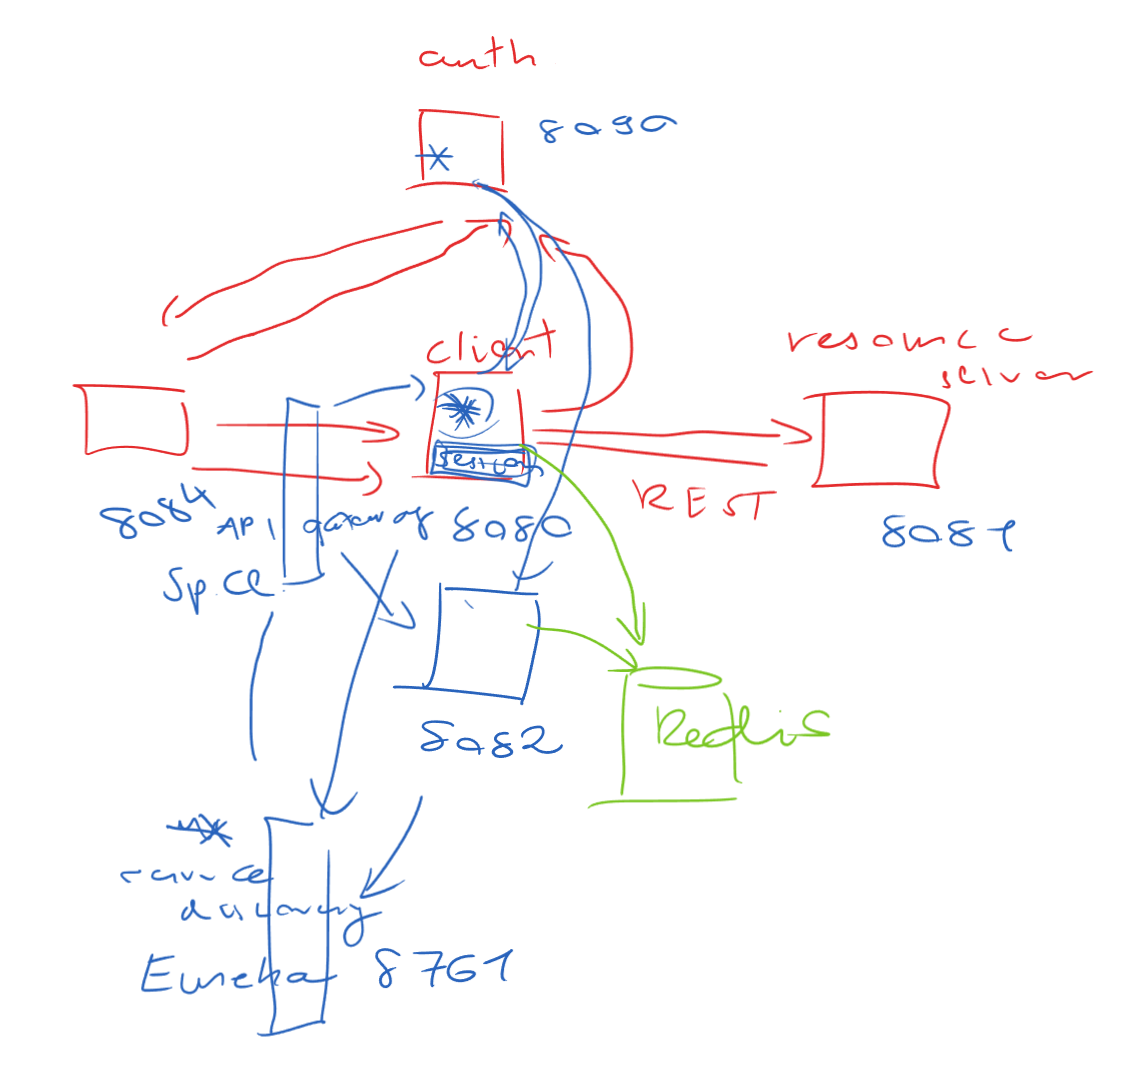 auth
8090
client
resource
server
session
REST
8084
API gateway
8080
8081
Sp. Cl.
8082
Redis
service
discovery
Eureka 8761